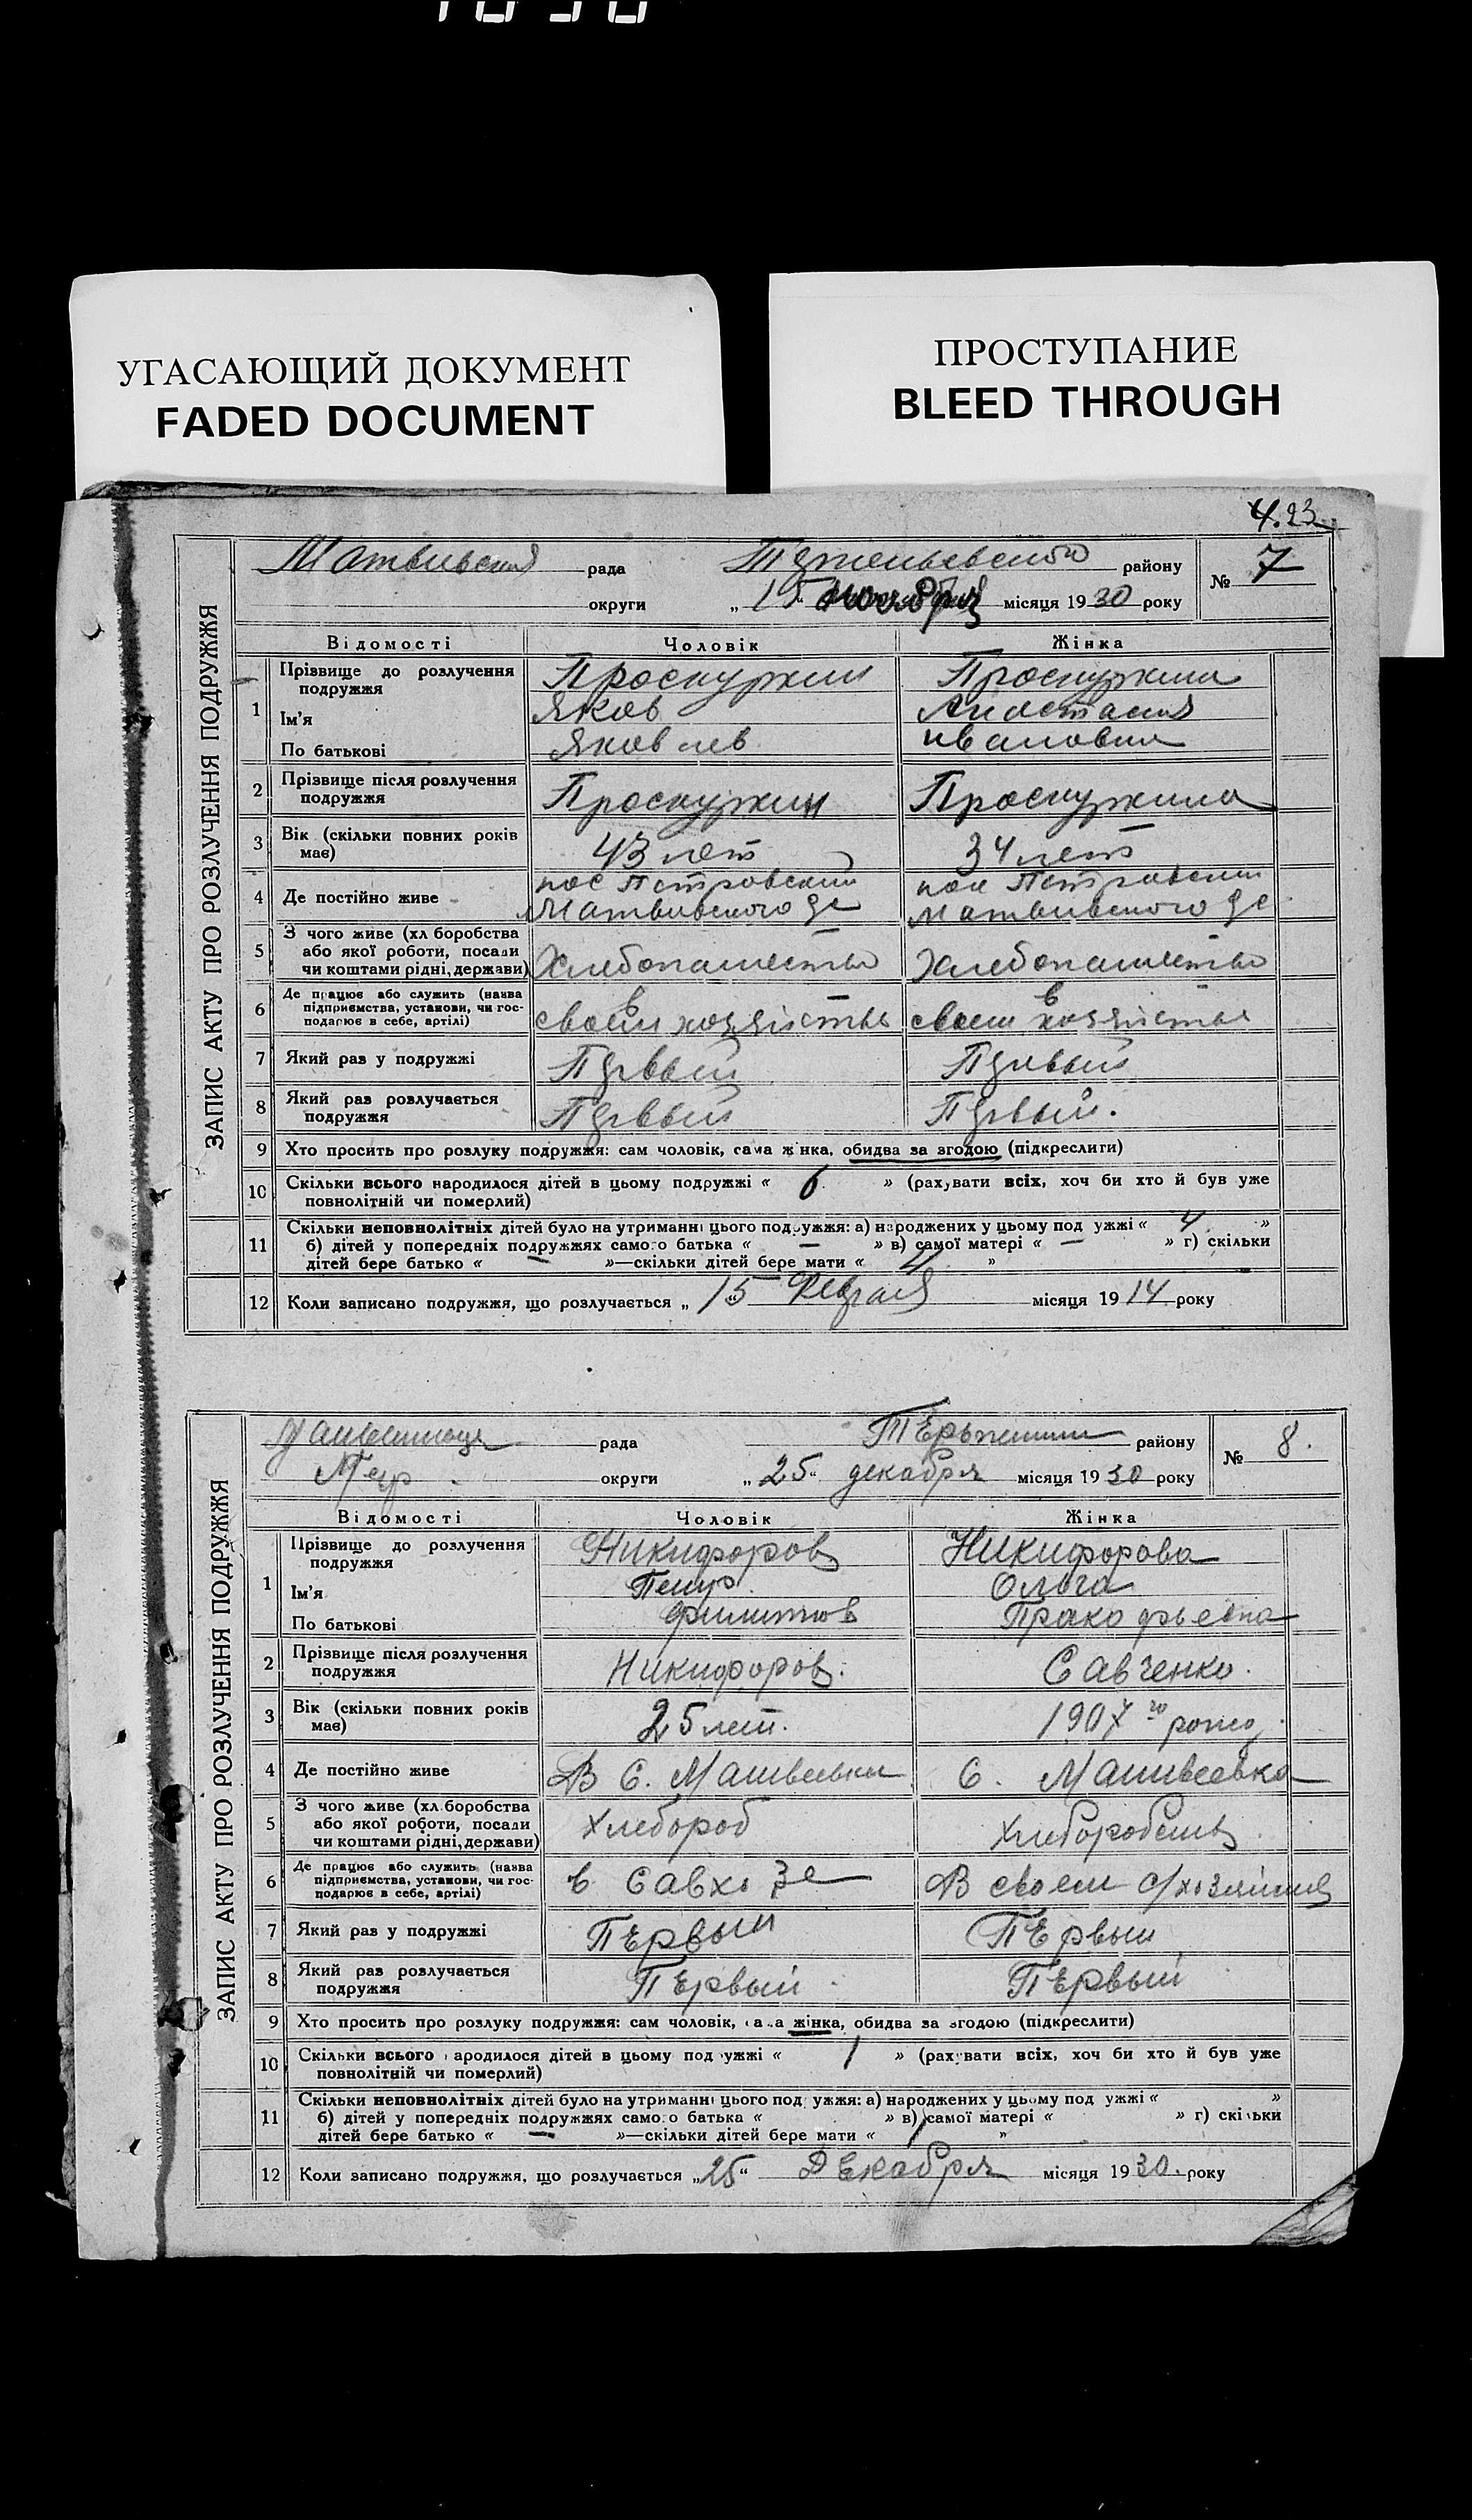 1930
УГАСАЮЩИЙ ДОКУМЕНТ
FADED DOCUMENT
ПРОСТУПАНИЕ
BLEED THROUGH
4. 23
ЗАПИС АКТУ ПРО РОЗЛУЧЕННЯ ПОДРУЖЖЯ
рада району № 7
округи „15“ ноября місяця 1930 року
Відомості Чоловік Жінка
1 Прізвище до розлучення подружжя Проскуркин Проскуркина
Ім'я Яков Анастасия
По батькові Яковлев Ивановна
2 Прізвище після розлучення подружжя Проскуркин Проскуркина
3 Вік (скільки повних років має) 43 лет 34 лет
4 Де постійно живе пос Петровский пос Петровский
Матвивского Матвивского
5 З чого живе (хліборобства або якої роботи, посади чи коштами рідні, держави) Хлебопашество Хлебопашество
6 Де працює або служить (назва підприємства, установи, чи господарює в себе, артілі) в своем хозяйстве в своем хозяйстве
7 Який раз у подружжі Первый Первый
8 Який раз розлучається подружжя Первый Первый.
9 Хто просить про розлуку подружжя: сам чоловік, сама жінка, обидва за згодою (підкреслити)
10 Скільки всього народилося дітей в цьому подружжі « 6 » (рахувати всіх, хоч би хто й був уже
повнолітній чи померлий)
11 Скільки неповнолітніх дітей було на утриманні цього подружжя: а) народжених у цьому подружжі « 4 »
б) дітей у попередніх подружжях самого батька « — » в) самої матері « — » г) скільки
дітей бере батько « — »—скільки дітей бере мати « 4 »
12 Коли записано подружжя, що розлучається „15“ місяця 1914 року
ЗАПИС АКТУ ПРО РОЗЛУЧЕННЯ ПОДРУЖЖЯ
рада району № 8.
округи „25“ декабря місяця 1930 року
Відомості Чоловік Жінка
1 Прізвище до розлучення подружжя Никифоров Никифорова
Ім'я Петр. Ольга
По батькові Филиппов Пракофьевна
2 Прізвище після розлучення подружжя Никифоров. Савченко.
3 Вік (скільки повних років має) 25 лет. 1907 го
4 Де постійно живе В С. Матвеевки С. Матвеевка
5 З чого живе (хліборобства або якої роботи, посади чи коштами рідні, держави) Хлебороб
6 Де працює або служить (назва підприємства, установи, чи господарює в себе, артілі) в Савхозе В своем с/хозяйстве
7 Який раз у подружжі Первый Первый
8 Який раз розлучається подружжя Первый Первый
9 Хто просить про розлуку подружжя: сам чоловік, сама жінка, обидва за згодою (підкреслити)
10 Скільки всього народилося дітей в цьому подружжі « 1 » (рахувати всіх, хоч би хто й був уже
повнолітній чи померлий)
11 Скільки неповнолітніх дітей було на утриманні цього подружжя: а) народжених у цьому подружжі « »
б) дітей у попередніх подружжях самого батька « » в) самої матері « » г) скільки
дітей бере батько « — »—скільки дітей бере мати « 1 »
12 Коли записано подружжя, що розлучається „25“ Декабря місяця 1930. року